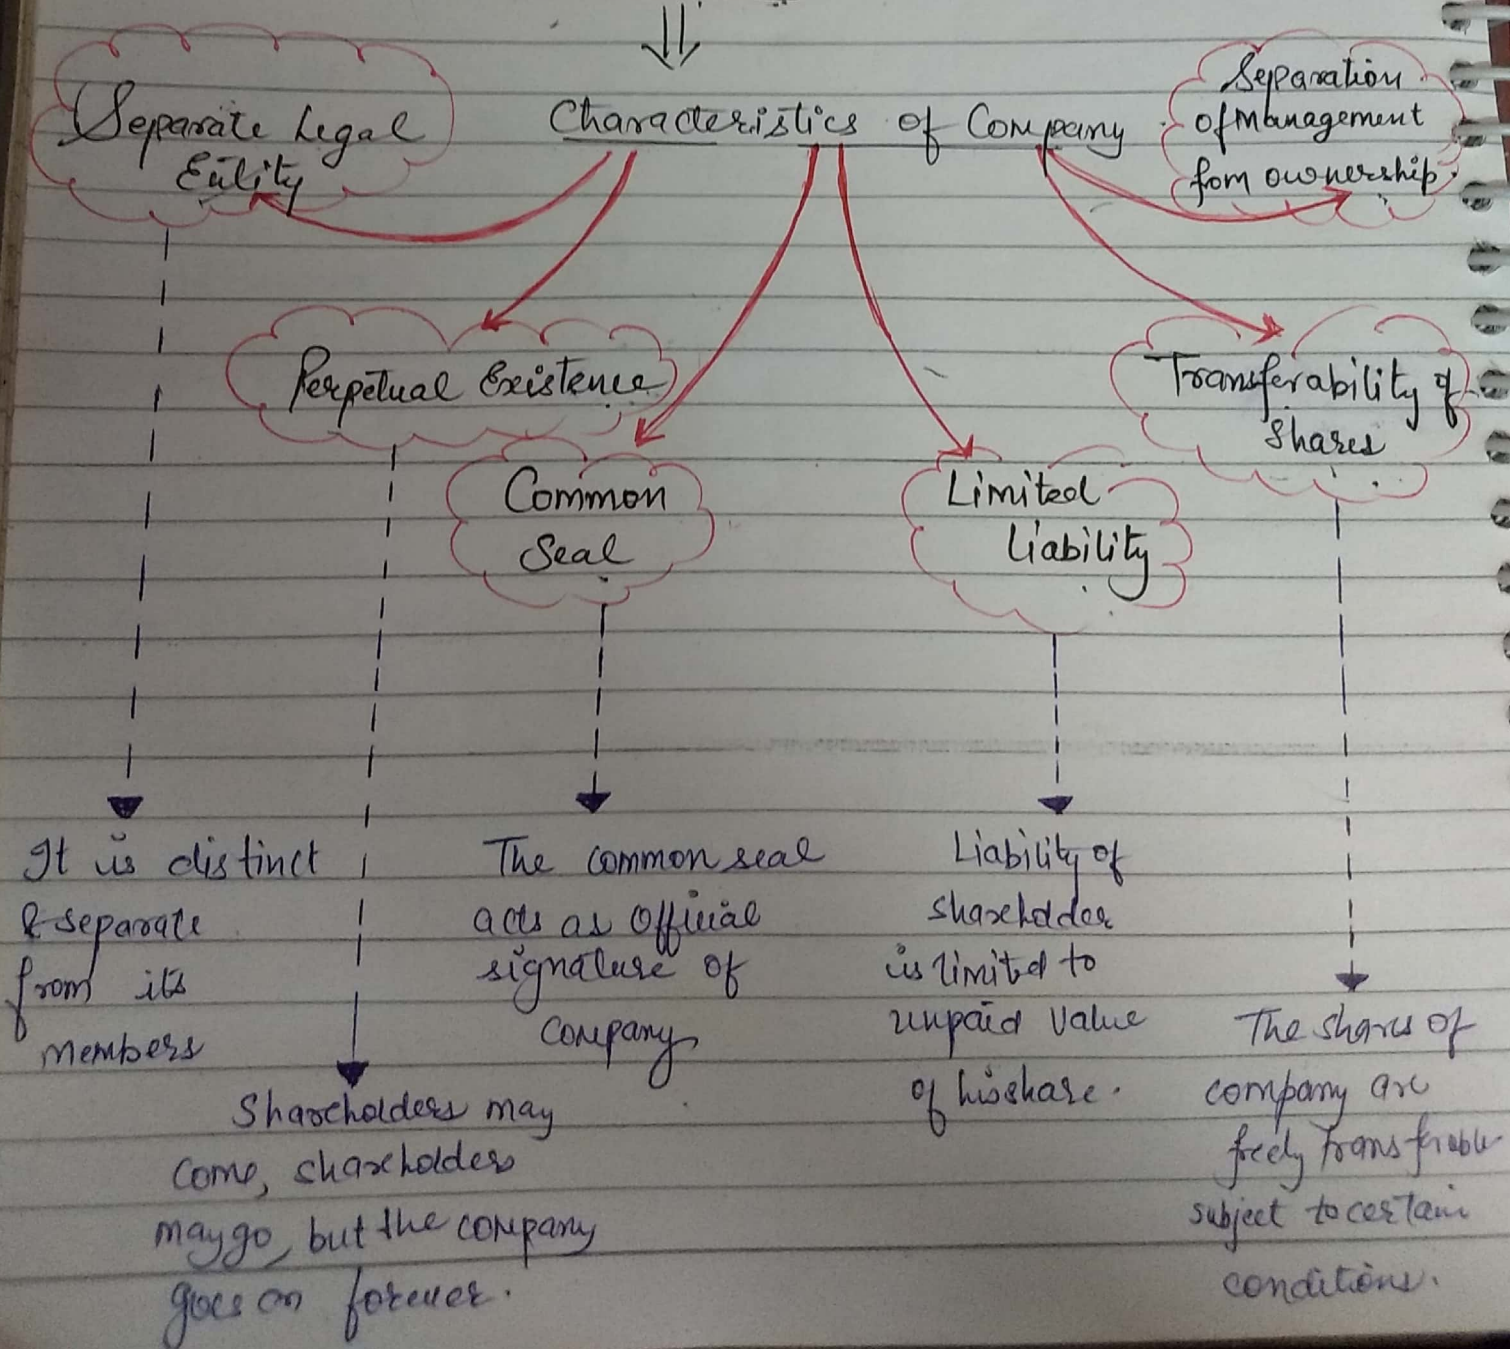 Characteristics of Company
Separate Legal
Entity
Separation
of management
fom ownership.
Perpetual Existence
Transferability of
shares
Common
Seal
Limited
liability
It is distinct
& separate
from its
members
Shareholders may
come, shareholders
may go, but the company
goes on forever.
The common seal
acts as official
signature of
company
Liability of
shareholder
is limited to
unpaid value
of his share.
The shares of
company are
freely transfrable
subject to certain
conditions.